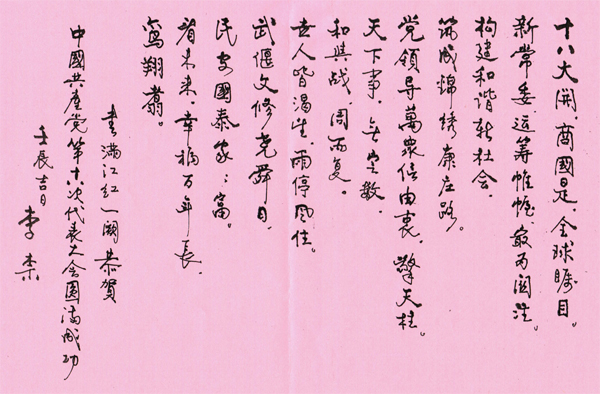 十八大開，商國是，全球矚目。
新常委，运筹帷幄，最为関注。
构建和谐新社会，
筑成锦绣康庄路。
党領导萬眾信由衷，擎天柱。
天下事，無定数，
和與战，周而复。
世人皆渴望，雨停風住。
武偃文修尭舜日，
民安國泰家家富。
看未来，幸福万年長，
鸾翔翥。
書满江红一阕恭賀
中國共產党第十八次代表大會圆满成功
壬辰吉日 李